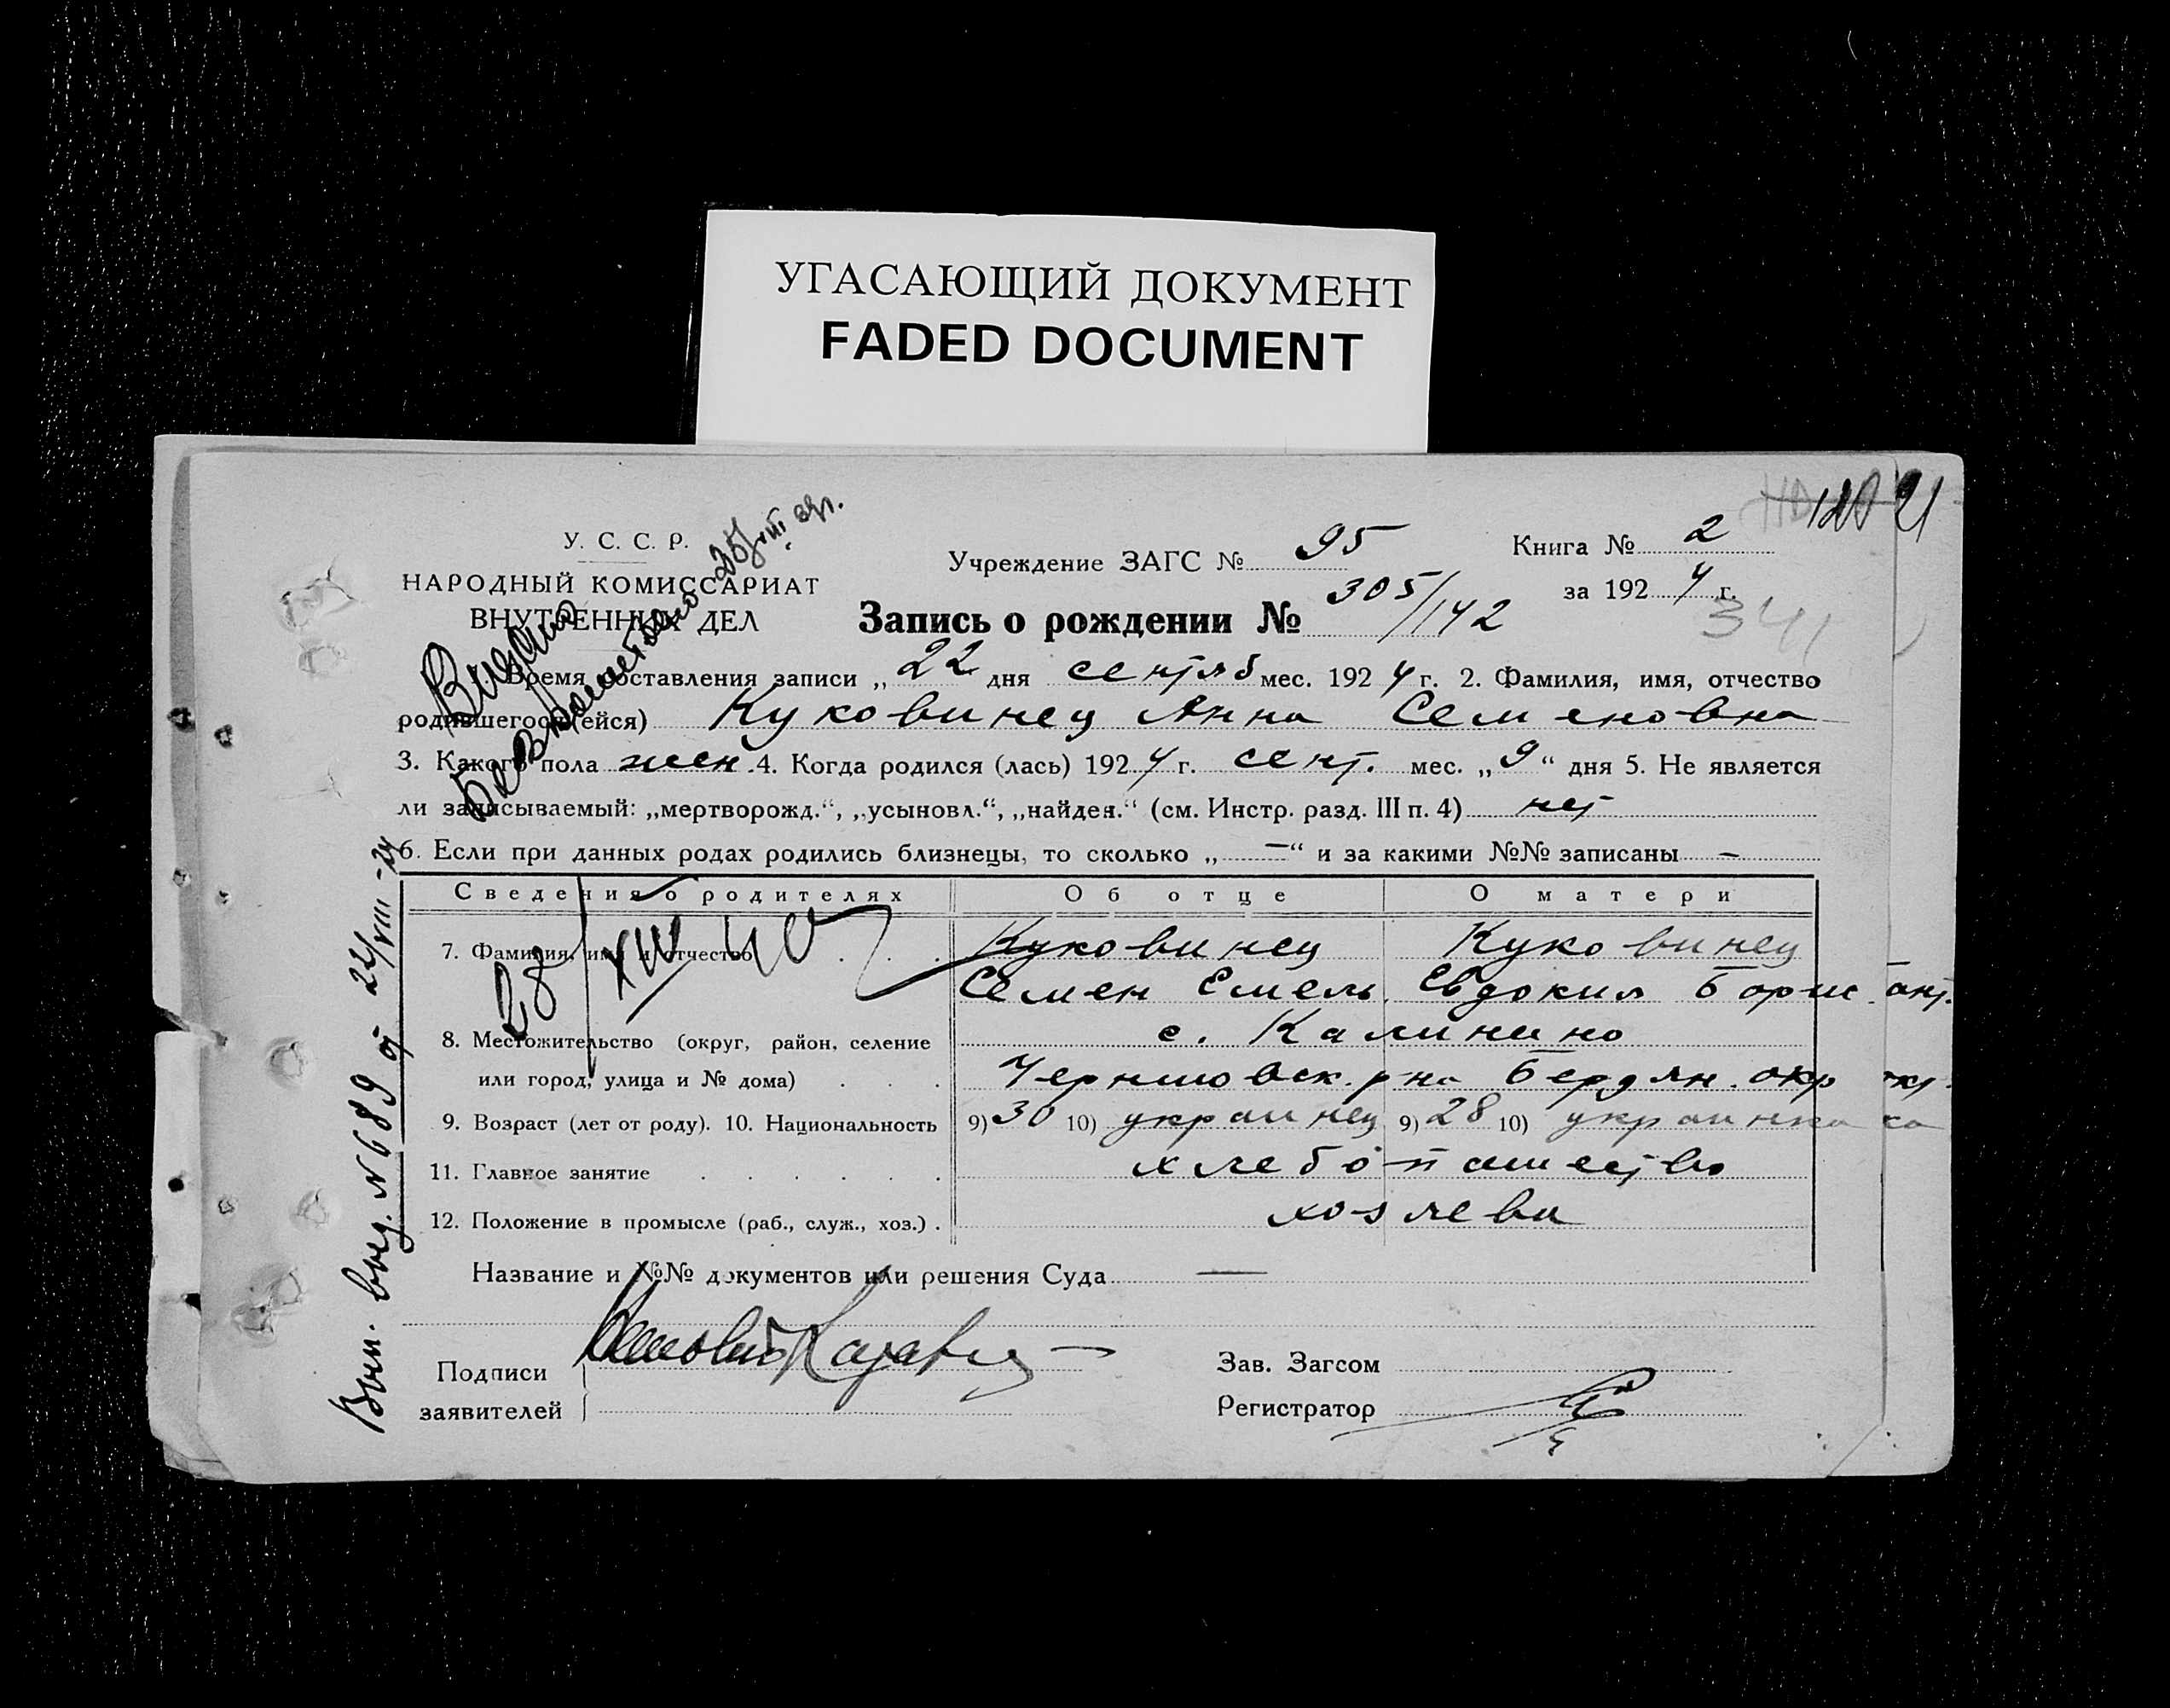 УГАСАЮЩИЙ ДОКУМЕНТ
FADED DOCUMENT
У. С. С. Р.
НАРОДНЫЙ КОМИССАРИАТ
ВНУТРЕННИХ ДЕЛ
Учреждение ЗАГС № 95
Книга № 2
за 1924 г.
341
Запись о рождении № 305/142
Время составления записи „22 дня сентяб мес. 1924 г. 2. Фамилия, имя, отчество
родившегося (ейся) Куковинец Анна Семеновна
3. Какого пола жен. 4. Когда родился (лась) 1924 г. сент. мес. „9“ дня 5. Не является
ли записываемый: „мертворожд.“, „усыновл.“, „найден.“ (см. Инстр. разд. III п. 4) нет
6. Если при данных родах родились близнецы, то сколько „—“ и за какими №№ записаны —
Сведения о родителях Об отце О матери
7. Фамилия, имя и отчество . . . Куковинец Куковинец
Семен Емель. Евдокия Борис
8. Местожительство (округ, район, селение с. Калинино
или город, улица и № дома) . . . Черниговск. р-на Бердян. окр
9. Возраст (лет от роду). 10. Национальность 9) 30 10) украинец 9) 28 10) украинка
11. Главное занятие . . . . . . хлебопашество
12. Положение в промысле (раб., служ., хоз.) . хозяева
Название и №№ документов или решения Суда —
Подписи
заявителей
Зав. Загсом
Регистратор
№ 689 от 22/VIII-24